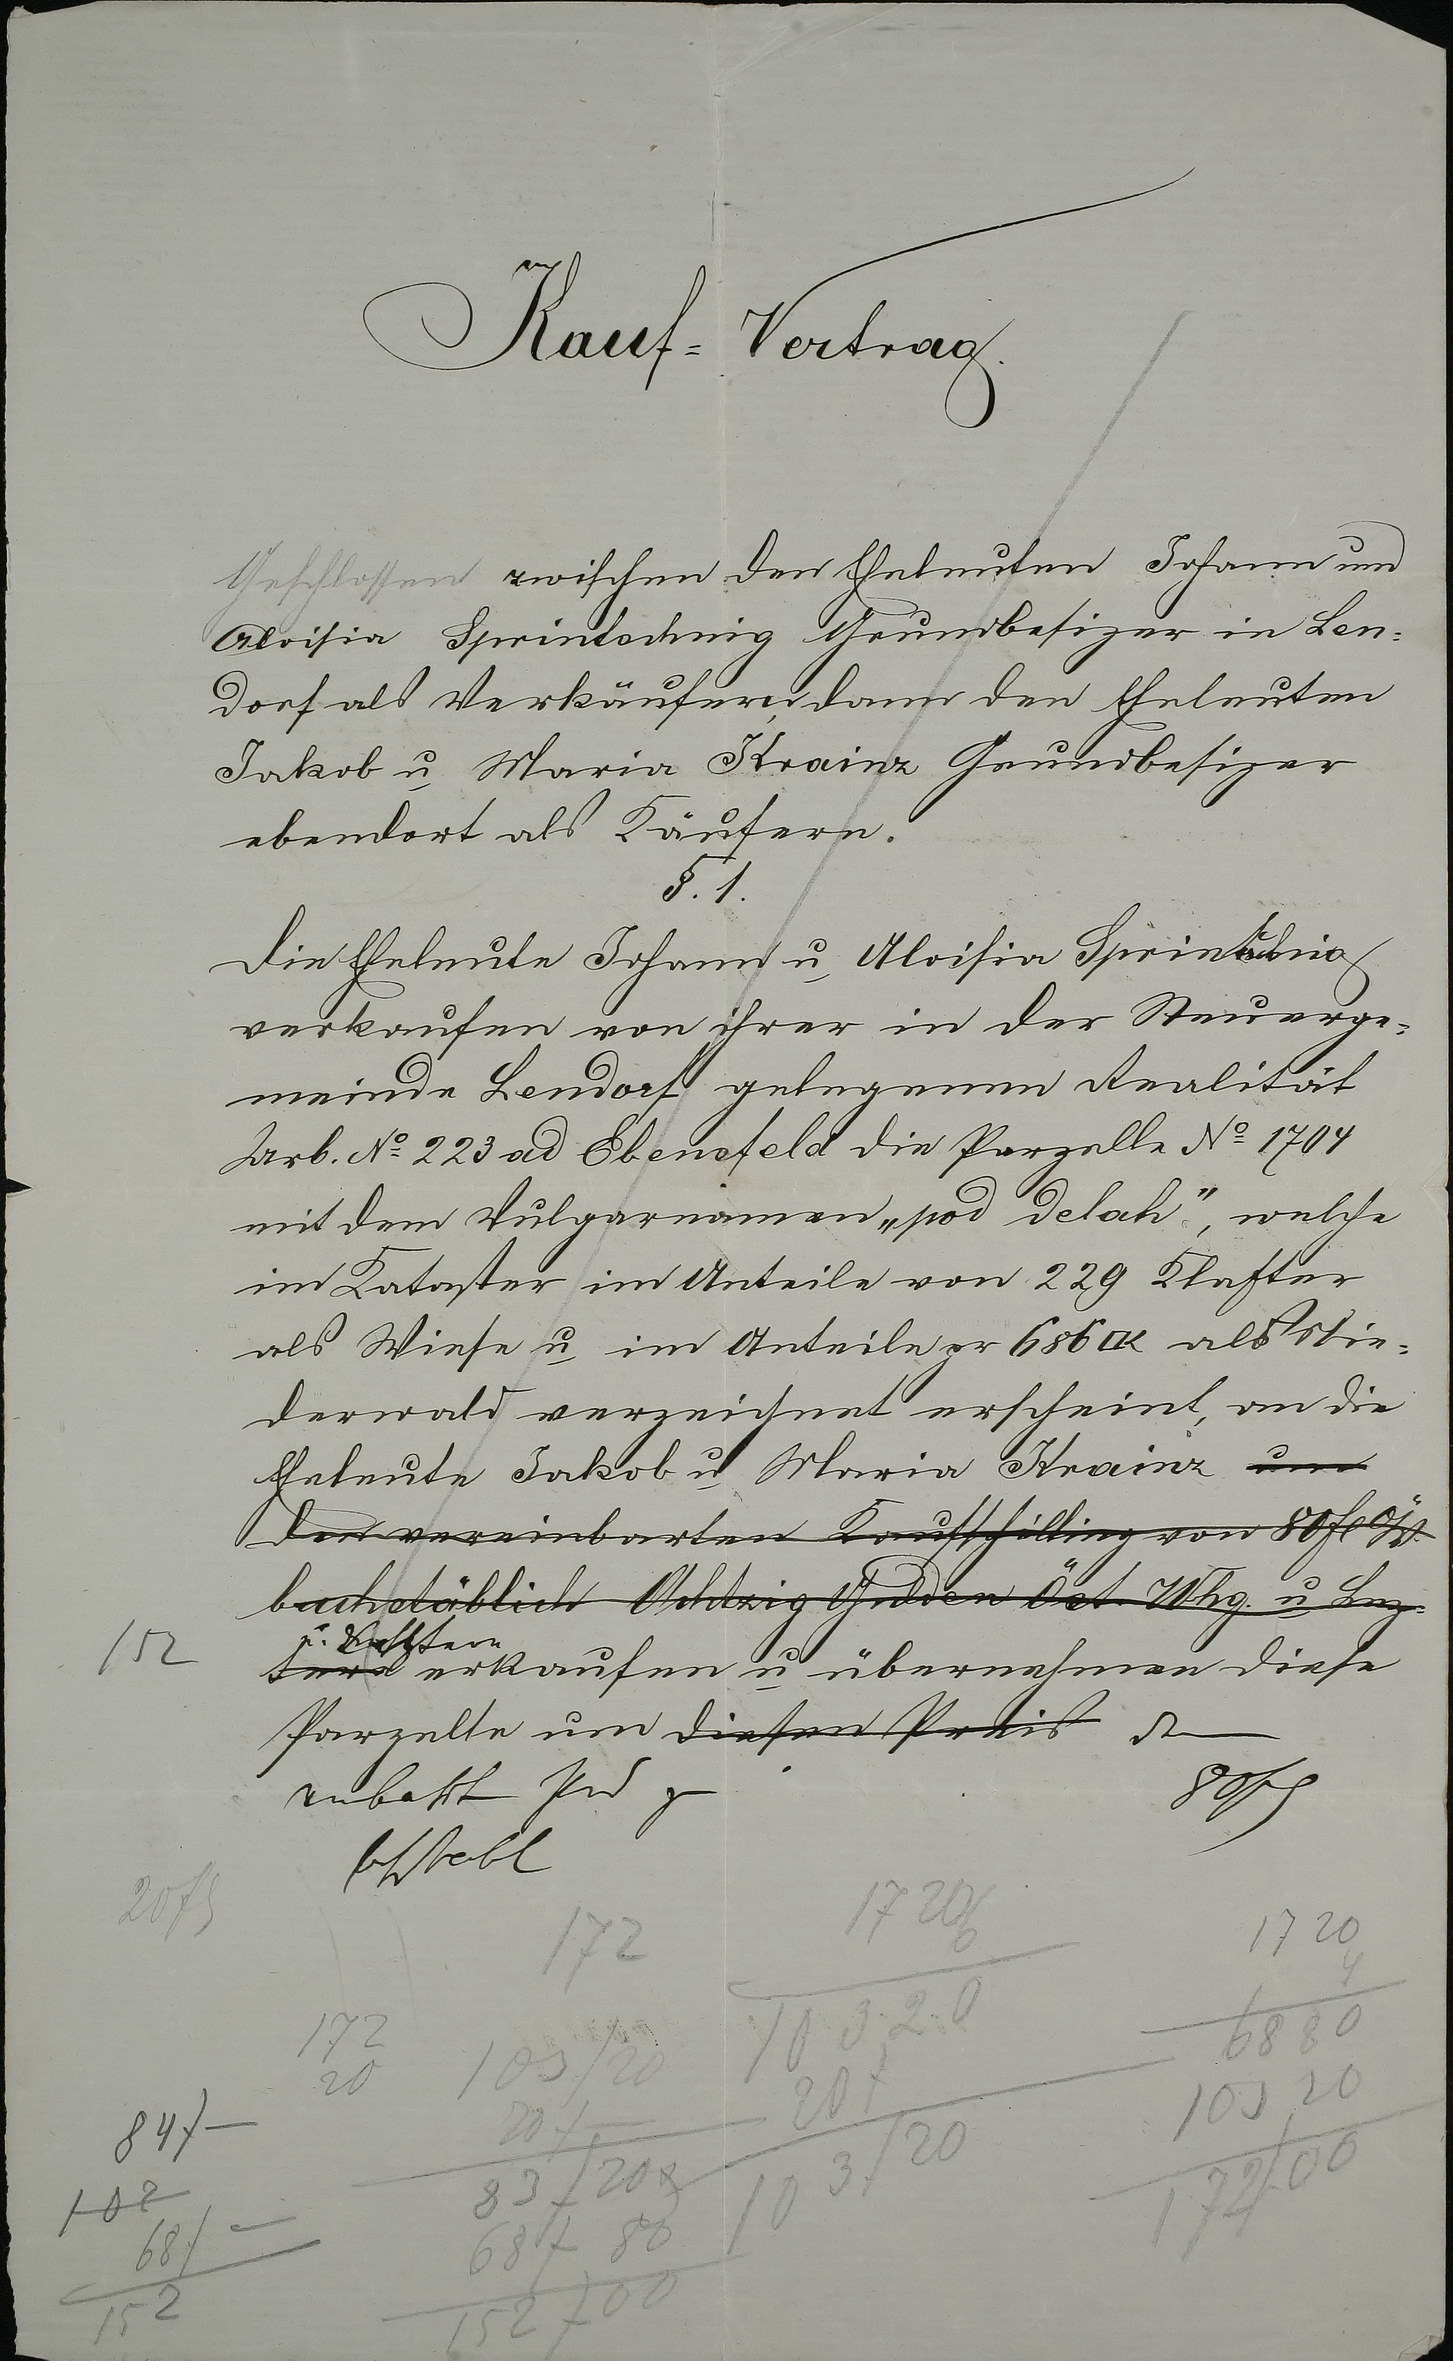 Kauf= Vertrag.
Geschlossen zwischen den Eheleuten Johann und
Aloisia Sprintschnig Grundbesizer in Len=
dorf als Verkäufern, dann den Eheleuten
Jakob u. Maria Krainz Grundbesizer
ebendort als Käufern.
§. 1.
Die Eheleute Johann u. Aloisia Sprintschnig
verkaufen von ihrer in der Steuerge=
meinde Lendorf gelegenen Realität
Urb. No 223 ad Ebenefeld die Parzelle No 1704
mit dem Vulgarnamen „pod delah", welche
im Kataster im Anteile von 229 Klafter
als Wiese u. im Anteile pr 686 □K als Nie=
derwald verzeichnet erscheint, an die
Eheleute Jakob u. Maria Krainz um
den vereinbarten Kaufschilling von 80 fl ÖW.
buchstäblich Achtzig Gulden Öst. Whg. u. Lez=
152
u. Letztere
tere erkaufen u. übernehmen diese
Parzelle um diesen Preis
80 fl
20 fl
172
1720
6
1720
4
10320
6880
172
20
103/20
20 f
103/20
20 f
83 f 20
68 f 80
152 f 00
103 20
172/00
84 f —
102
68 f —
152